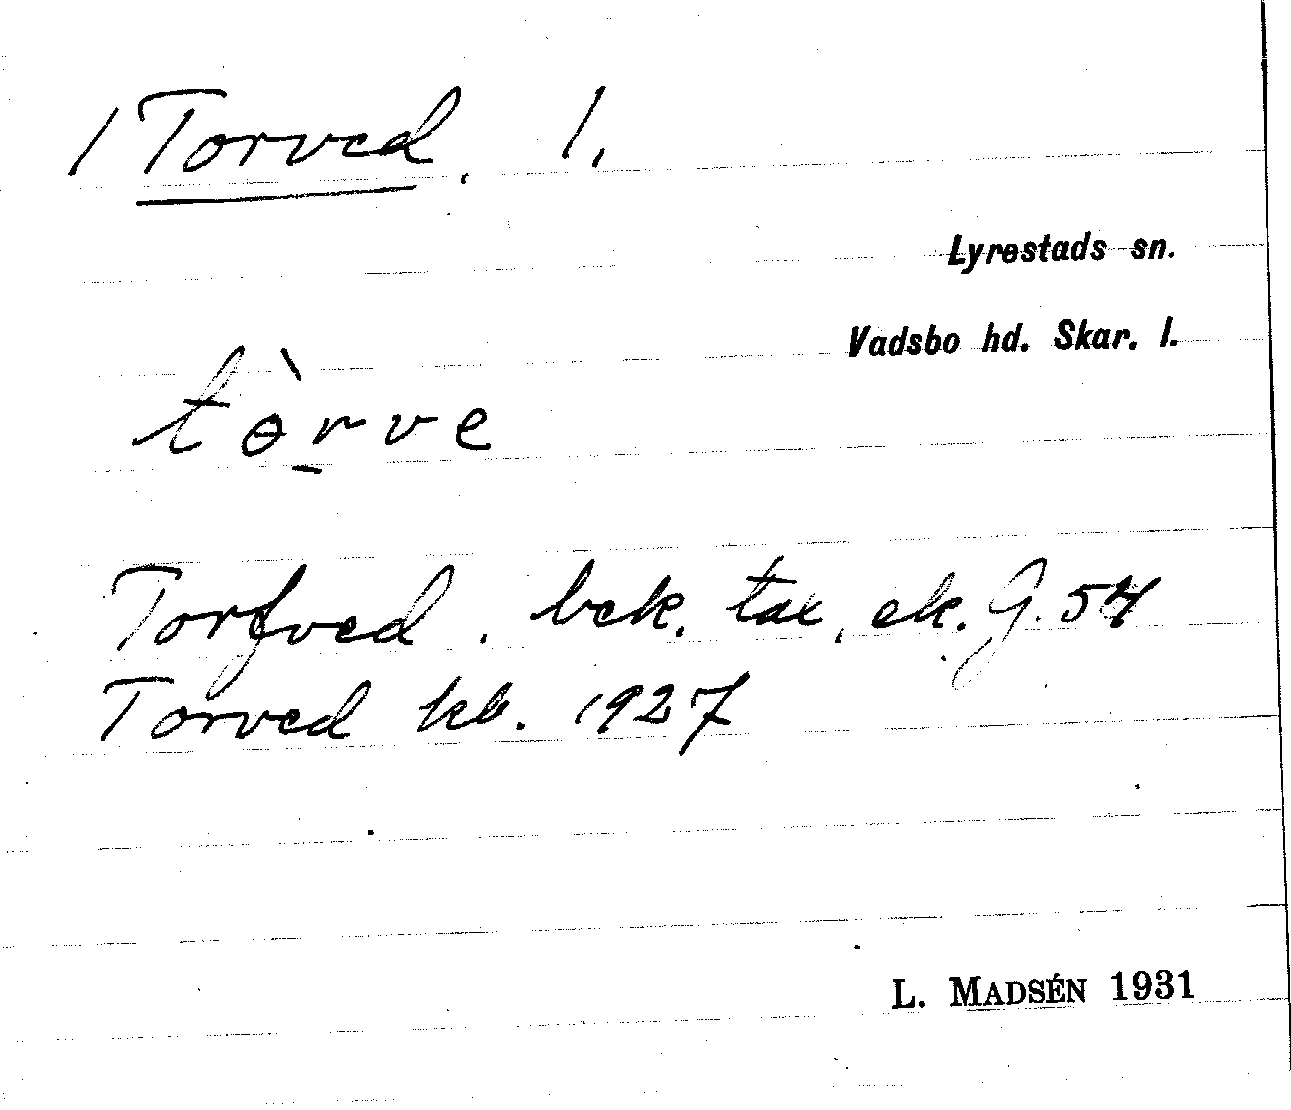 1 Torved. 1.
Lyrestads sn.
Vadsbo hd. Skar. l.
tɵ̀r̠ve
Torfved. bek. tax. ek. G. 54
Torved kb. 1927
L. MADSÉN 1931